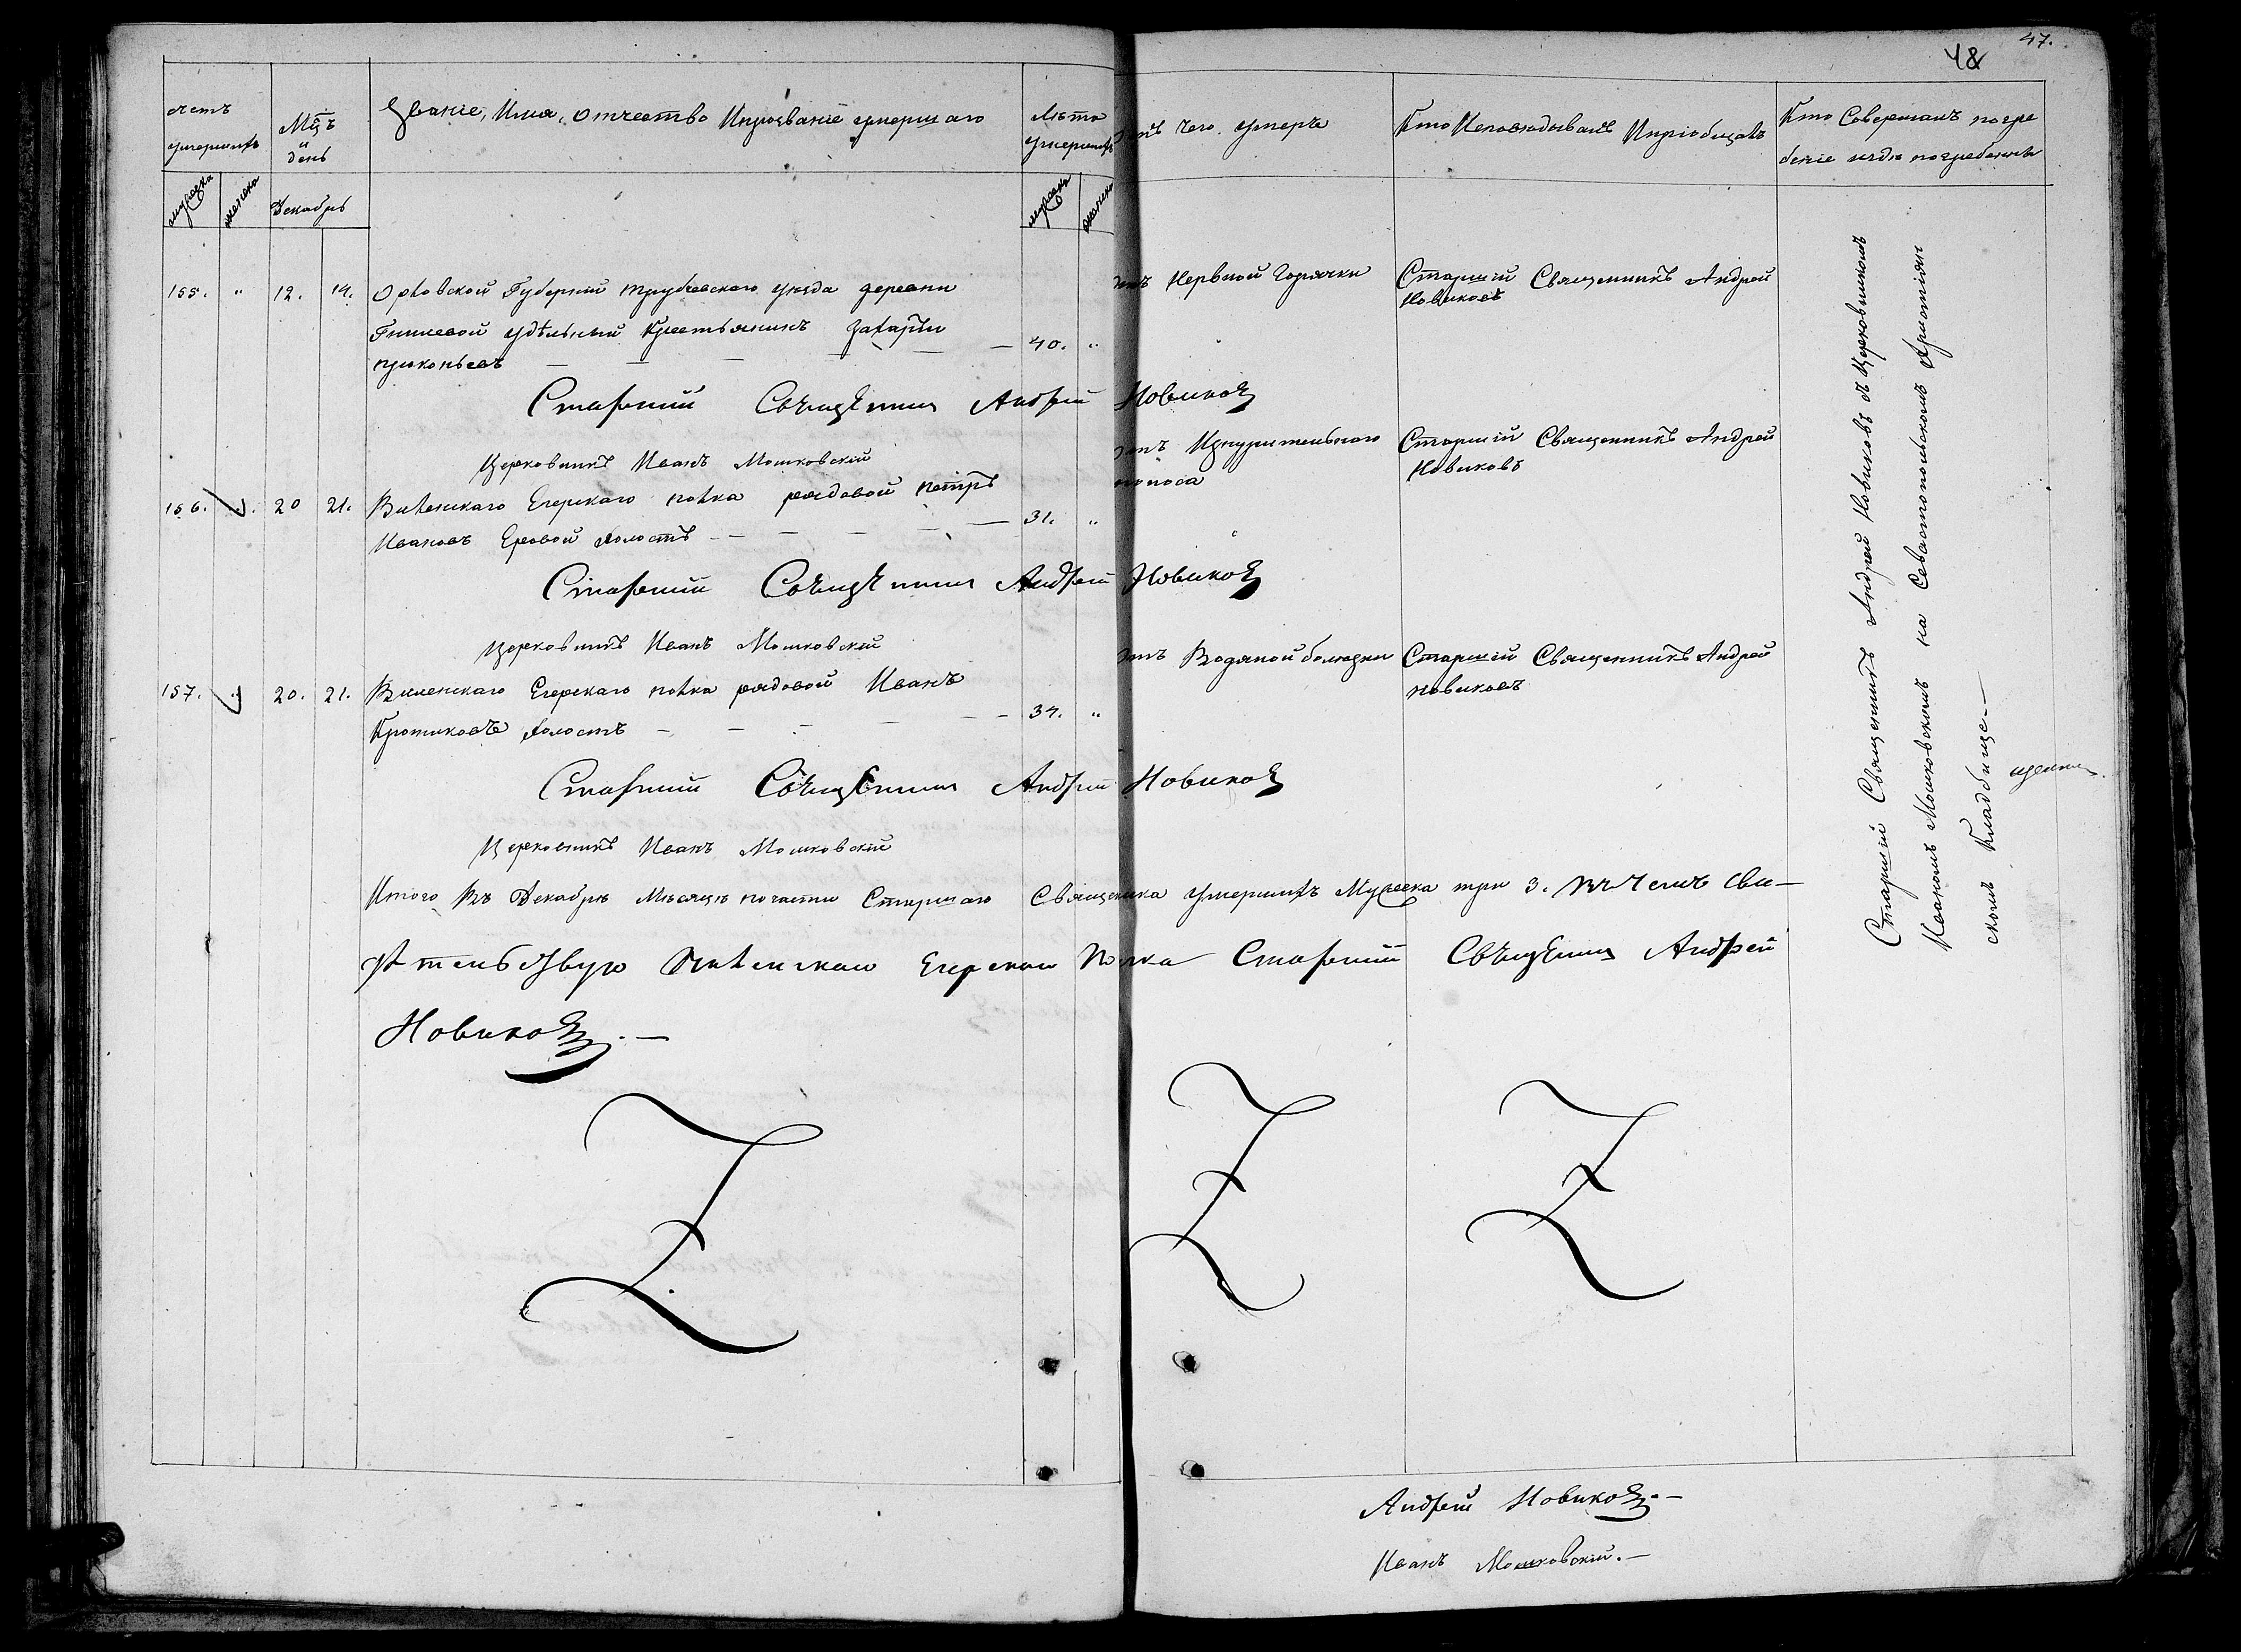 48
47.
счетъ умершихъ
Мцъ и день
Званіе, Имя, Отчество Ипрозваніе умершаго
Лѣта умершихъ
отъ чего умеръ
Кто Исповѣдывалъ Ипріобщалъ
Кто Совершалъ погре
беніе игдѣ погребены
мужеска
женска
Декабрь
мужеска
женска
155. " 12. 14. Орловской Губерніи трубчевскаго уѣзда деревни
удѣльный Крестьянинъ Захарій
прокопьевъ — — — — — 40. "
отъ Нервной Горячки
Старшій Священникъ Андрей
Новиковъ
Старшій Священникъ Андрей Новиковъ
Церковникъ Иванъ Мошковскій
156. " 20 21. Виленскаго Егерскаго полка рядовой петръ
Ивановъ Еровой холостъ — — — — — 31. "
отъ Изнурительнаго
поноса
Старшій Священникъ Андрей
Новиковъ
Старшій Священникъ Андрей Новиковъ
Церковникъ Иванъ Мошковскій
157. " 20. 21. Виленскаго Егерскаго полка рядовой Иванъ
Кротиковъ холостъ — — — — — 34. "
отъ Водяной болезни
Старшій Священникъ Андрей
Новиковъ
Старшій Священникъ Андрей Новиковъ
Церковникъ Иванъ Мошковскій
Итого Въ Декабрѣ Мѣсяцѣ почасти Старшаго Священика умершихъ Мужеска три 3. Въ чемъ Сви—
дѣтельствую Виленскаго Егерскаго Полка Старшій Священникъ Андрей
Новиковъ. —
Старшій Священникъ Андрей Новиковъ съ Церковникомъ
Иваномъ Мошковскимъ на Севастопольскомъ Христіян
скомъ Кладбище. —
Андрей Новиковъ. —
Иванъ Мошковскій. —